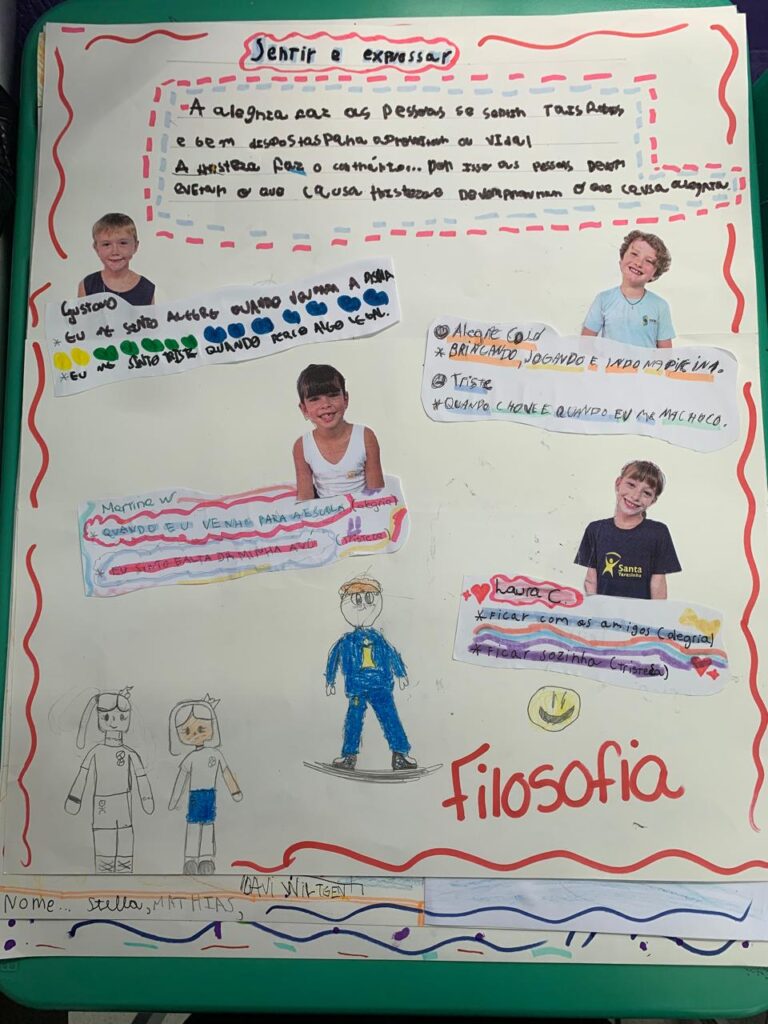 Sentir e expressar
A alegria faz as pessoas se sentir
e bem dispostas para aproveitar a vida!
A tristeza faz o contrário... Por isso as pessoas devem
evitar o que causa tristeza e o que causa alegria.
Gustavo
* EU ME SINTO ALEGRE QUANDO A
* EU ME SINTO TRISTE QUANDO PERCO ALGO LEGAL.
Alegre
* BRINCANDO, JOGANDO E INDO NA PISCINA.
Triste
* QUANDO CHOVE E QUANDO EU ME MACHUCO.
Martina W
* QUANDO EU VENHO PARA A ESCOLA (alegria)
* EU SINTO FALTA DA MINHA AVÓ (tristeza)
Santa
Teresinha
Laura C.
* Ficar com as amigos (alegria)
* Ficar sozinha (tristeza)
Filosofia
DAVI WILTGEN
Nome... Stella, MATHIAS,